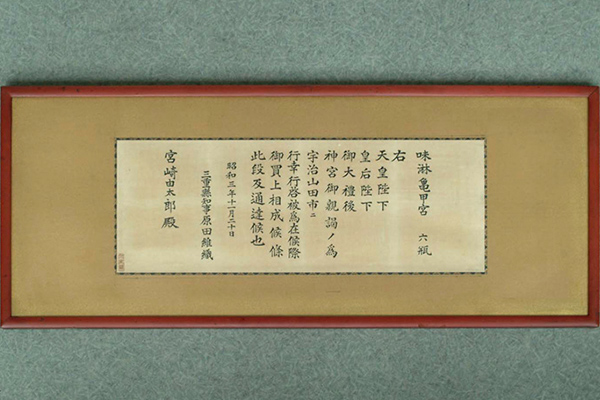 味淋亀甲宮 六瓶
右
天皇陛下
皇后陛下
御大禮後
神宮御親謁ノ為
宇治山田市ニ
行幸行啓被為在候際
御買上相成候條
此段及通達候也
昭和三年十一月二十日
三重縣知事原田維織
宮崎由太郎殿